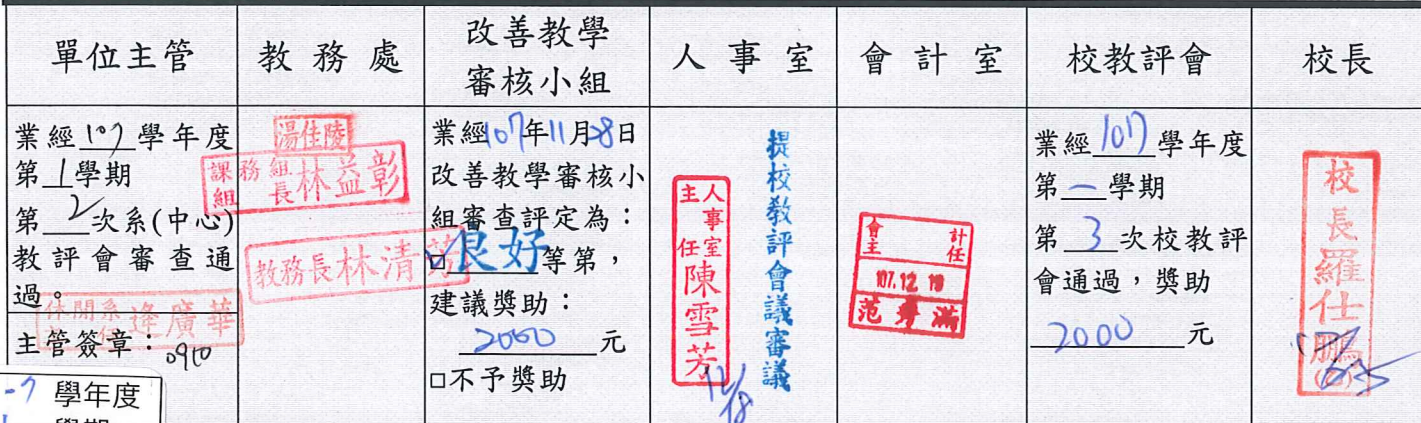 單位主管
教務處
改善教學
審核小組
人事室
會計室
校教評會
校長
業經107學年度
第1學期
第2次系(中心)
教評會審查通
過。
休閒系
主任 逄廣華
主管簽章：
0910
湯佳陵
課務組
組長 林益彰
教務長林清芳
業經107年11月28日
改善教學審核小
組審查評定為：
☑良好等第，
建議獎助：
2000元
□不予獎助
人事室
主任 陳雪芳
12/18
提校教評會議審議
會計
主任
107.12.19
范 滿
業經107學年度
第一學期
第3次校教評
會通過，獎助
2000元
校長羅仕鵬
(乙)
-7 學年度
學期